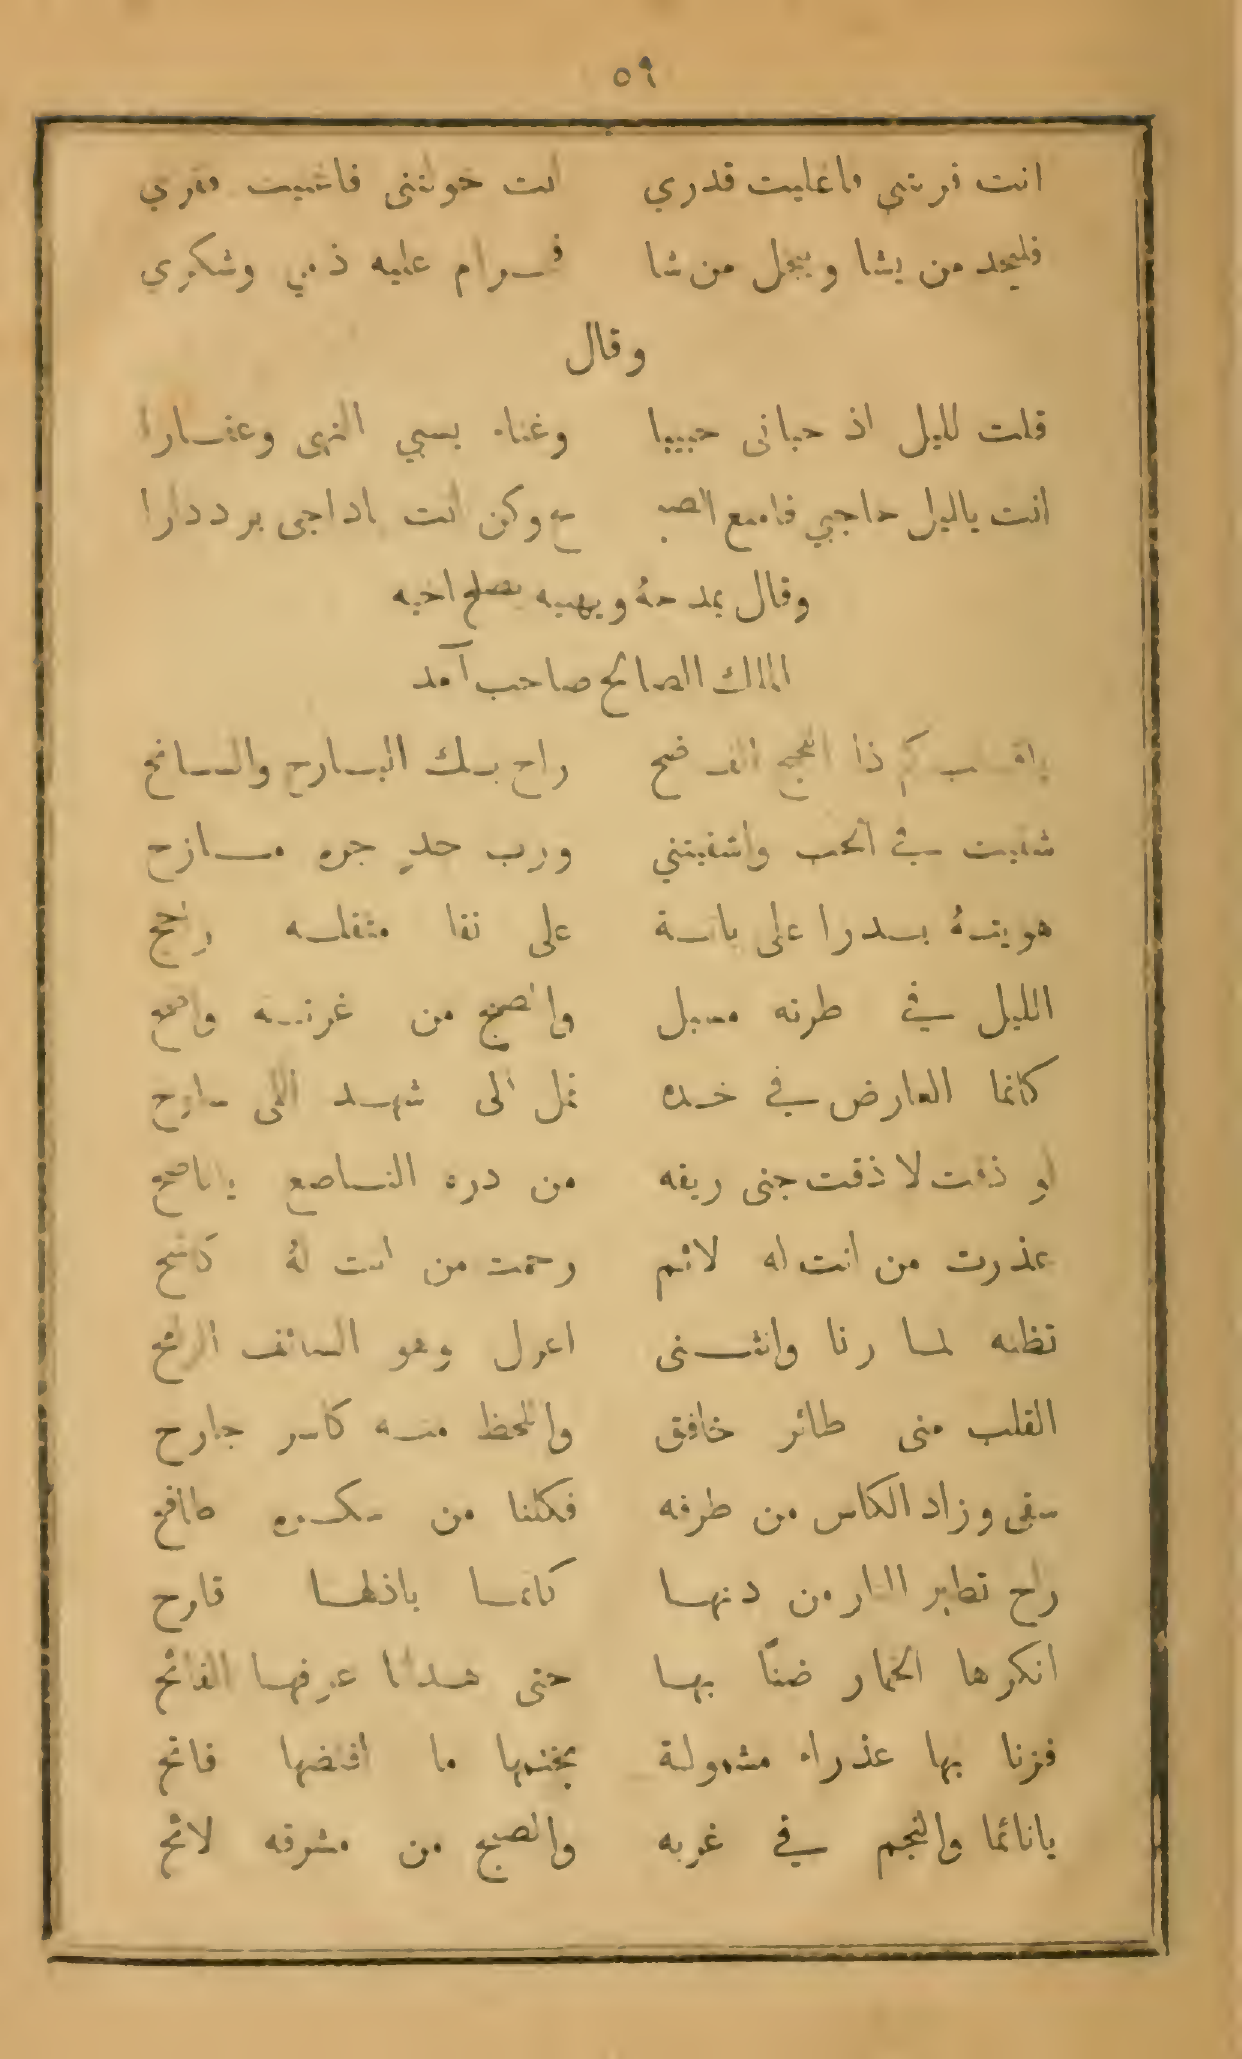 ٥٩
انت قربتني فاعليت قدري انت خولتني فافنيت فقري
فليجد من يشا ويبخل من شا فحرام عليه ذمي وشكري
وقال
قلت لليل اذ حباني حبيبا وغناء يسبي النهى وعقارا
انت ياليل حاجبي فامنع الصبـ ـح وكن انت يادجى برددارا
وقال يمدحهُ ويهنيه بصلح اخيه
الملك الصالح صاحب آمد
ياقلب كم ذا راح بك البارح والسانح
شقيت في الحب واشقيتني ورب جد جره مازح
هويتهُ بدرا على بانة على نقا مثقله راجح
الليل في طرته مسبل والصبح من غرته واضح
كانما العارض في خده نمل الى شهد اللمى سارح
لو ذقت لا ذقت جنى ريقه من دره الناصع يا ناصح
عذرت من انت له لائم رحمت من انت لهُ كاشح
تظنه لما رنا وانثنى اعزل وهو السائف الرامح
القلب مني طائر خافق واللحظ منه كاسر جارح
سقى وزاد الكاس من طرفه فكلنا من سكره طافح
راح تطير النار من دنها كانما باذلها قادح
انكرها الخمار ضنّا بها حتى هدانا عرفها الفائح
فزنا بها عذراء مشمولة بختمها ما افتضها فاتح
يانائما والنجم في غربه والصبح من مشرقه لائح